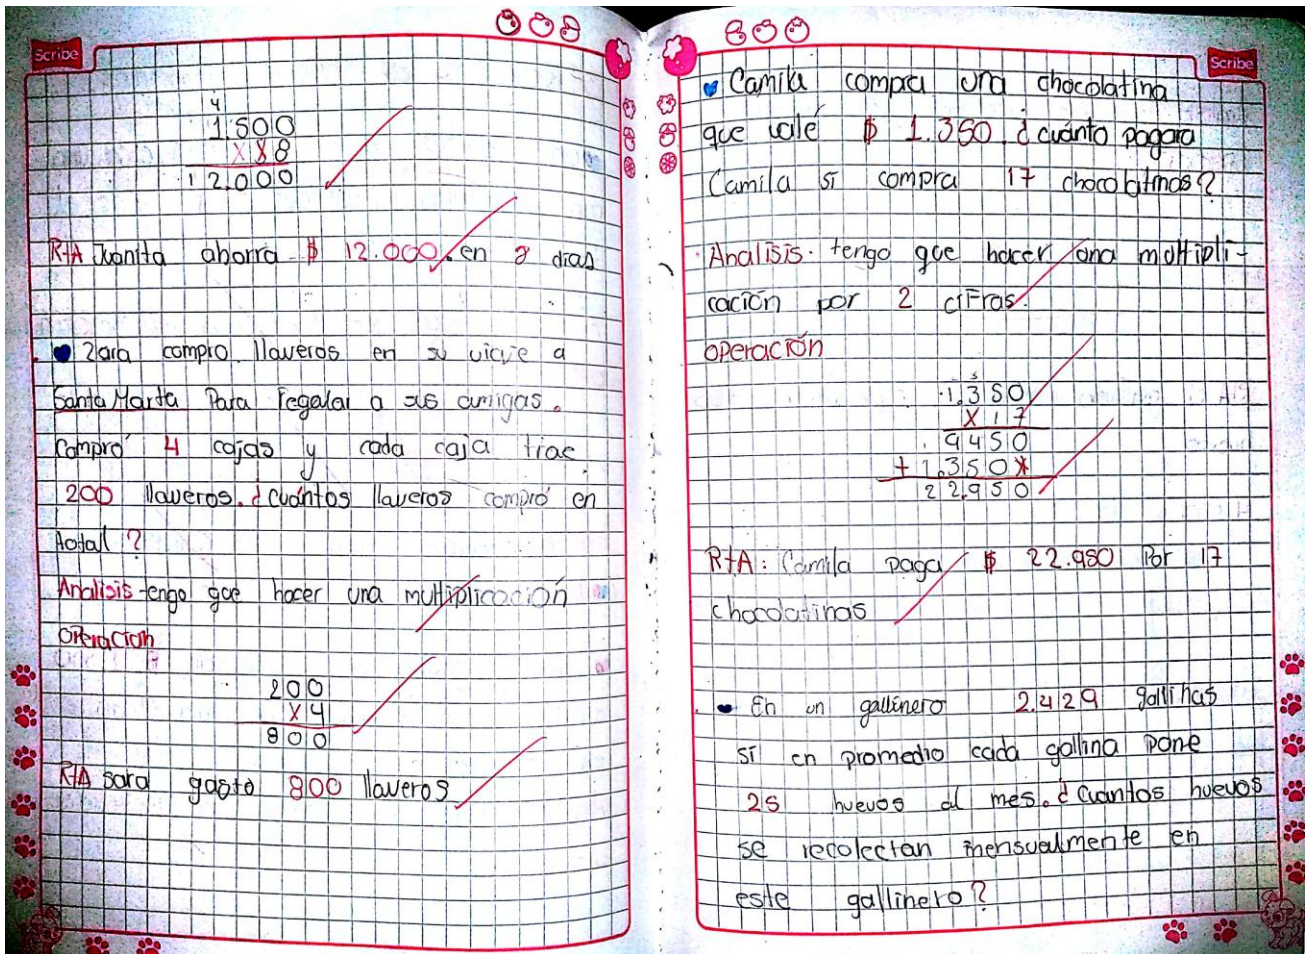 Scribe
4
1.500
x x8
12.000
R+A Juanita ahorra $ 12.000. en 8 dias
Zara compro. llaveros en su viaje a
Santa Marta Para regalar a sus amigas.
Compró 4 cajas y cada caja trae
200 llaveros. ¿cuántos llaveros compró en
total?
Analisis tengo que hacer una multiplicación
operacion
200
x4
800
R+A sara gasto 800 llaveros
Scribe
Camila compra una chocolatina
que valé $ 1.350. ¿cuánto pagara
Camila si compra 17 chocolatinas?
Analisis. tengo que hacer una multipli-
cación por 2 cifras.
operación
1.350
x17
9450
+ 1.350*
22.950
R+A: Camila paga $ 22.950 Por 17
chocolatinas
En un gallinero 2.429 gallinas
si en promedio cada gallina pone
25 huevos al mes. ¿Cuantos huevos
se recolectan mensualmente en
este gallinero?